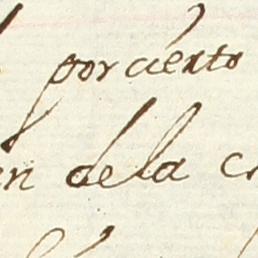 por ciento
en de la